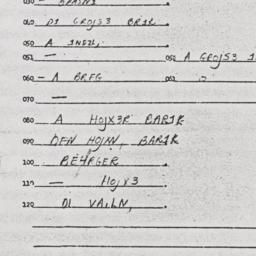 010 DI GROJS3 BR1K
050 A
052 — 052 A GROJS3
060 — A BRFG 062
070 —
080 A HOJX3R BAR1K
090 DFN HOJNN, BAR1K
100 BE4RGER
110 — HOJX3
120 DI VAILN,